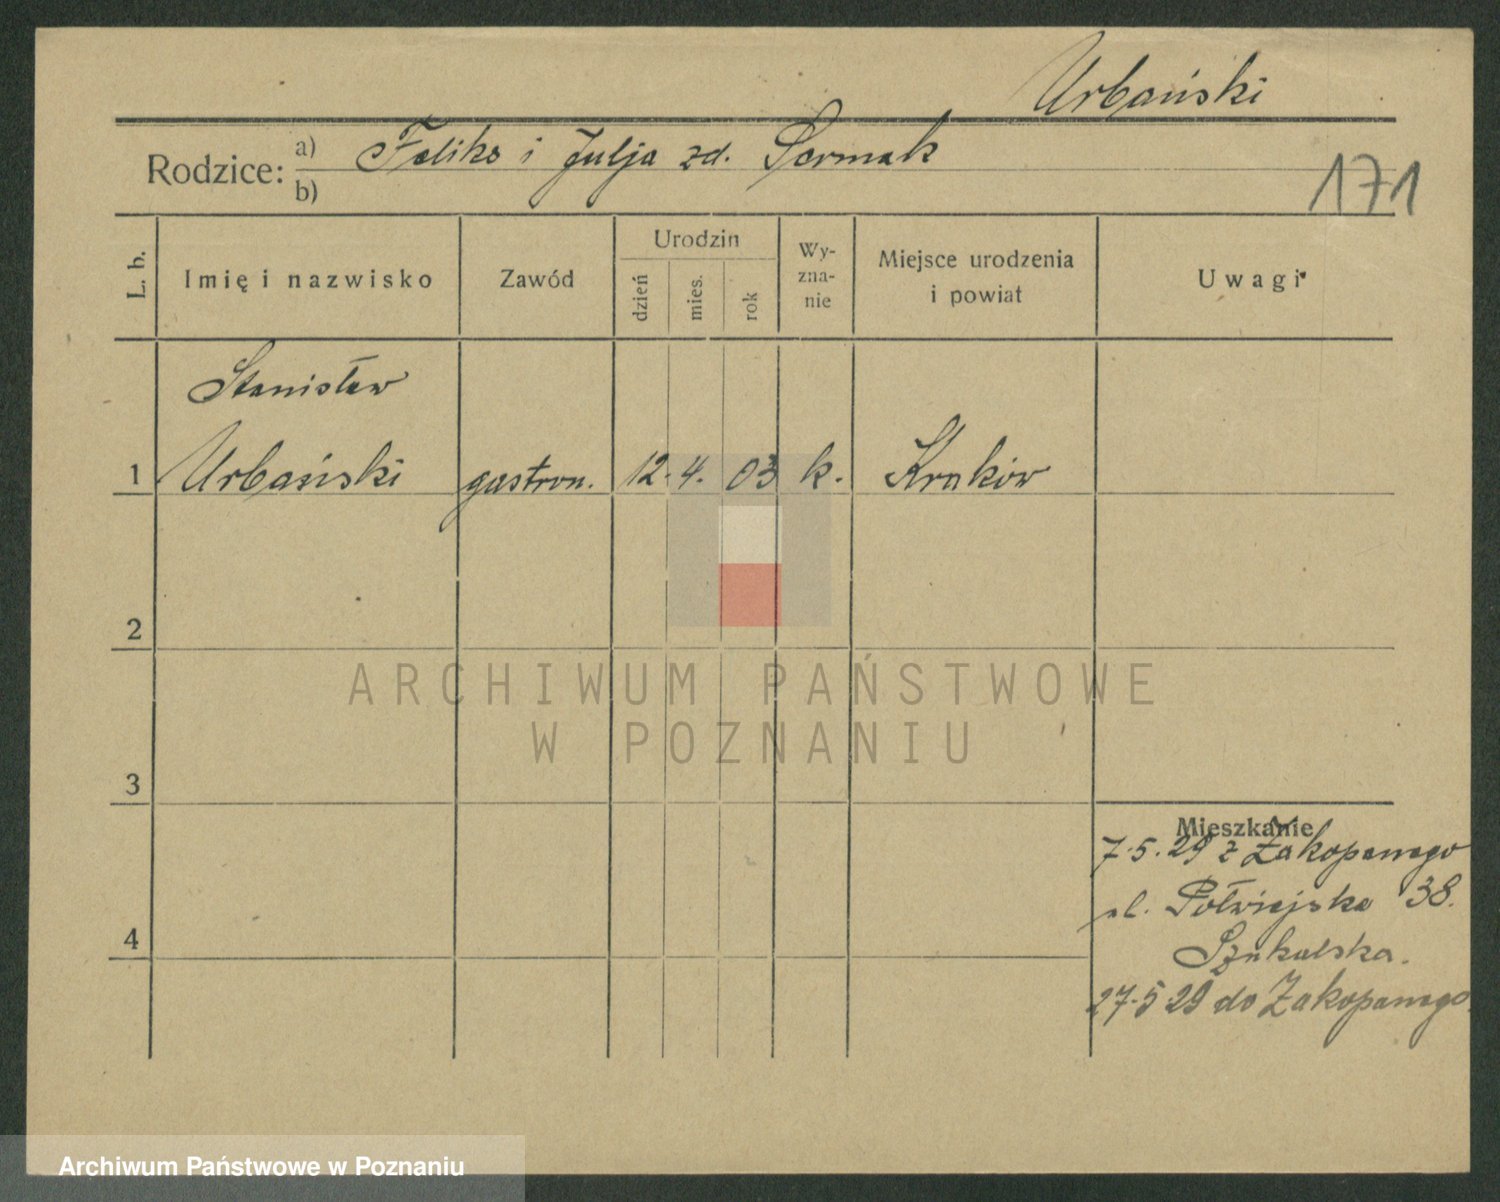 Urbański
Rodzice: a) Feliks i Julja zd. Sermak
b)
171
L. b.
Imię i nazwisko
Zawód
Urodzin
dzień
mies.
rok
Wy-
zna-
nie
Miejsce urodzenia
i powiat
Uwagi
Stanisław
1 Urbański gastron. 12. 4. 03 k. Kraków
2
3
4
Mieszkanie
7.5.29 z Zakopanego
ul. Półwiejska 38.
Szukalska.
27.5 29 do Zakopanego
ARCHIWUM PAŃSTWOWE
W POZNANIU
Archiwum Państwowe w Poznaniu